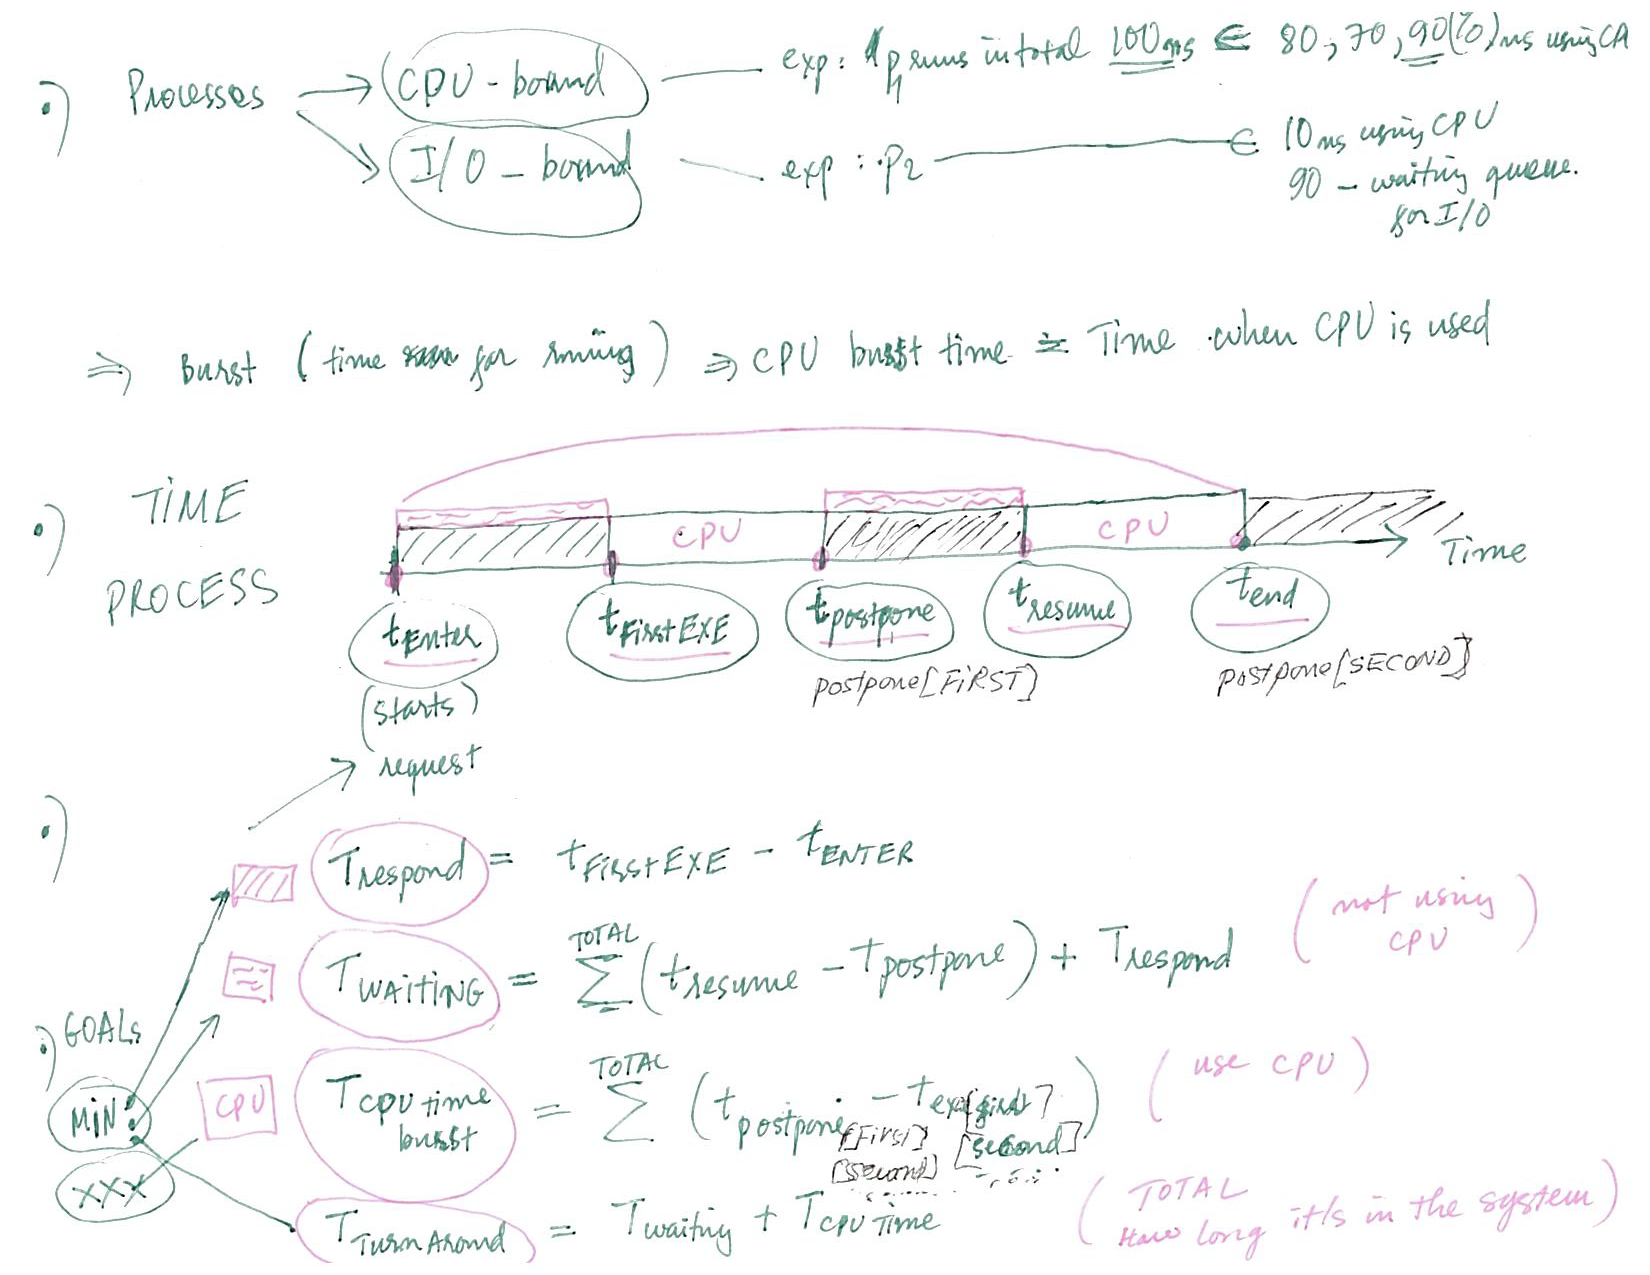 •) Processes → CPU-bound — exp: P1 runs in total 100ms ∈ 80, 70, 90(%) ms using CP
→ I/O-bound — exp: P2 — ∈ 10 ms using CPU
90 - waiting queue.
for I/O
⇒ Burst (time for running) ⇒ CPU burst time = Time when CPU is used
•) TIME
PROCESS
CPU
CPU
Time
tEnter
tFirstEXE
tpostpone
tresume
tend
postpone[FIRST]
postpone[SECOND]
(starts)
request
•)
Trespond = tFirstEXE - tENTER
(not using
CPU)
TOTAL
TWAITING = Σ (tresume - Tpostpone) + Trespond
•) GOALS
MIN
XXX
CPU
(use CPU)
TOTAL
Tcpu time burst = Σ (tpostpone [First] [second] - texe[first] [second])
......
TTurnAround = Twaiting + TCPU Time
(TOTAL
How long it/s in the system)